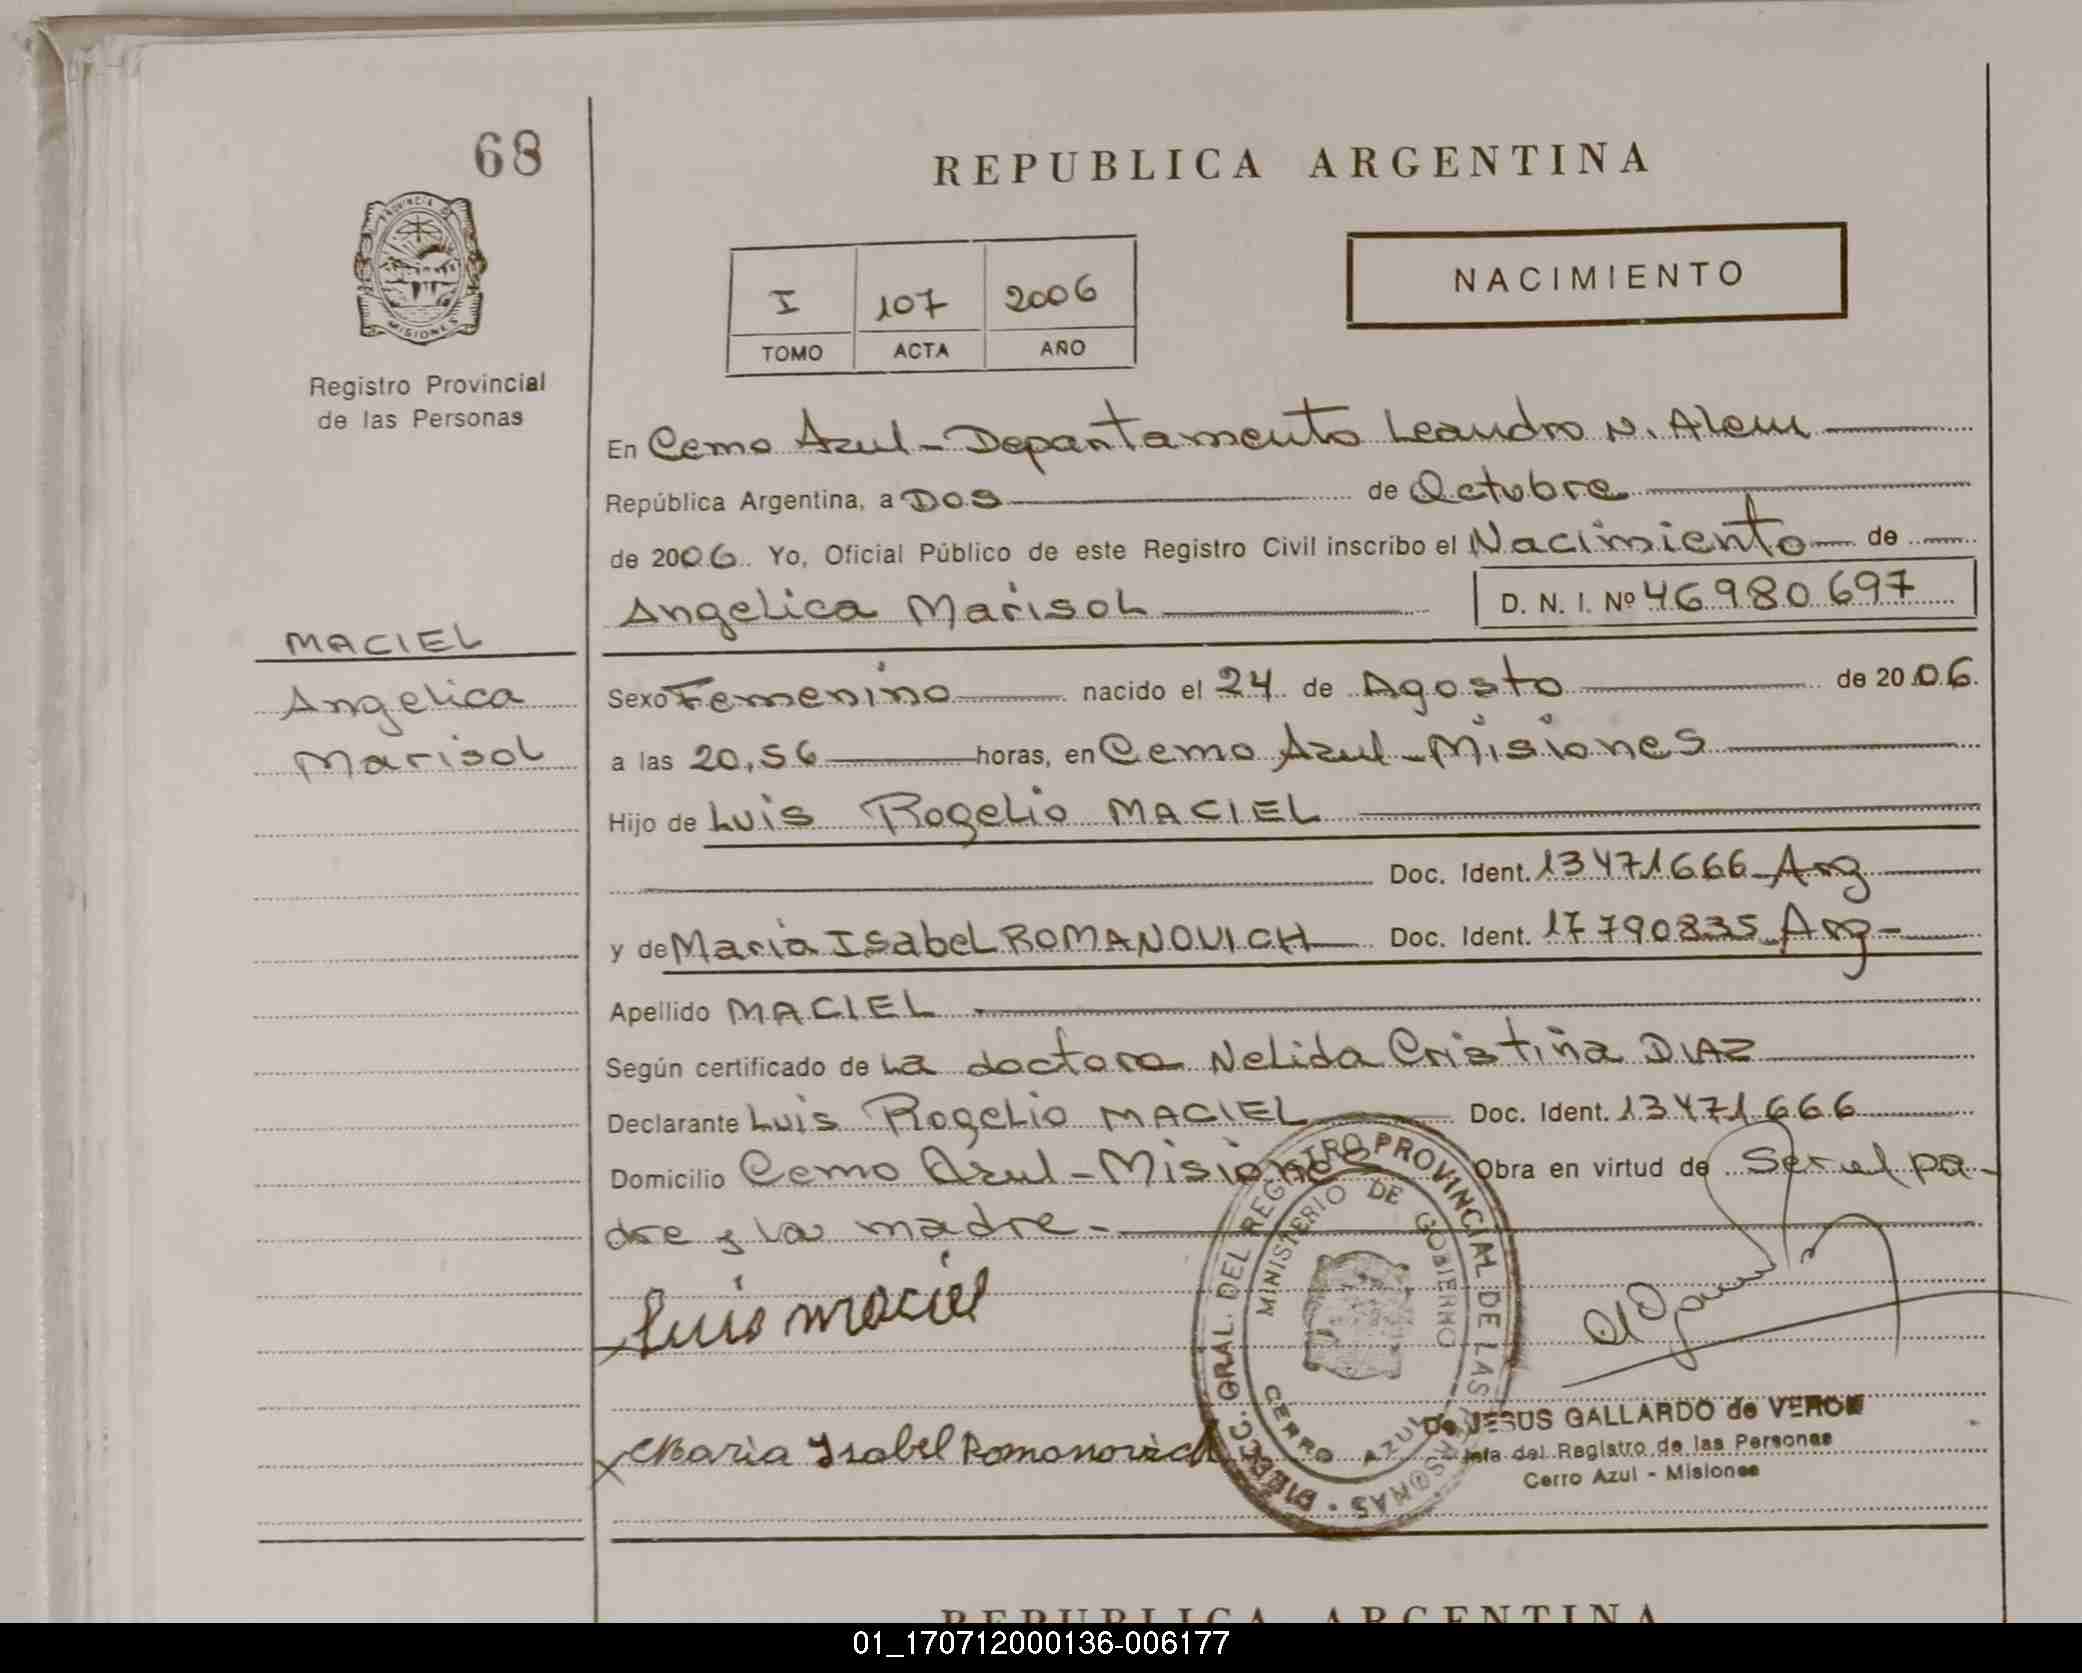 68
REPUBLICA ARGENTINA
PROVINCIA DE
MISIONES
Registro Provincial
de las Personas
NACIMIENTO
I 107 2006
TOMO ACTA AÑO
En Cerro Azul - Departamento Leandro N. Alem
República Argentina, a Dos de Octubre
de 2006. Yo, Oficial Público de este Registro Civil inscribo el Nacimiento de
Angelica Marisol D. N. I. Nº 46980697
MACIEL
Angelica
Marisol
Sexo Femenino nacido el 24 de Agosto de 2006.
a las 20,56 horas, en Cerro Azul - Misiones
Hijo de Luis Rogelio MACIEL
Doc. Ident. 13471666 Arg
y de Maria Isabel ROMANOVICH Doc. Ident. 17790835 Arg-
Apellido MACIEL
Según certificado de La doctora Nelida Cristina DIAZ
Declarante Luis Rogelio MACIEL Doc. Ident. 13471666
Domicilio Cerro Azul - Misiones Obra en virtud de Ser el pa-
dre y la madre -
Luis maciel
Maria Isabel Romanovich
DIRECC. GRAL. DEL REGISTRO PROVINCIAL DE LAS PERSONAS
MINISTERIO DE GOBIERNO
CERRO AZUL
De JESUS GALLARDO de VERON
Jefe del Registro de las Personas
Cerro Azul - Misiones
REPUBLICA ARGENTINA
01_170712000136-006177